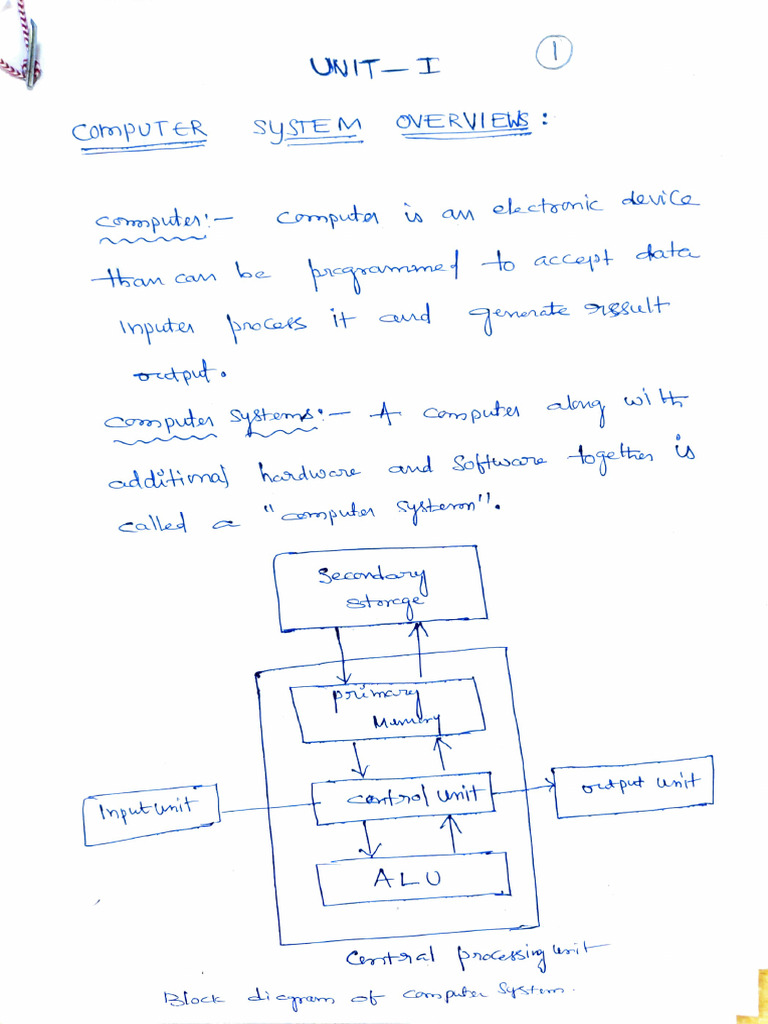 1
UNIT-I
COMPUTER SYSTEM OVERVIEWS:
computer:- computer is an electronic device
than can be programmed to accept data
inputer process it and generate ressult
output.
computer systems:- A computer along with
additional hardware and software together is
called a "computer systerm".
secondary
storage
primary
Memory
Input unit
control unit
output unit
ALU
Central processing unit
Block diagram of computer system.